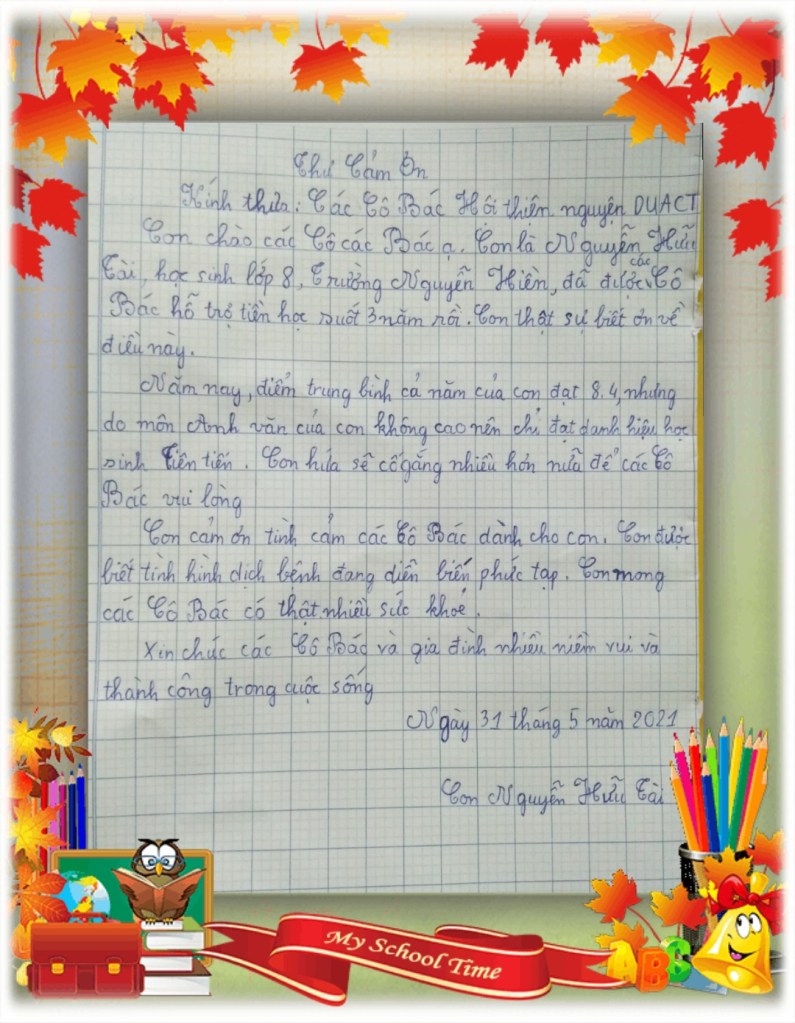 Thư Cảm Ơn
Kính thưa: Các Cô Bác Hội thiện nguyện DUACT
Con chào các Cô các Bác ạ. Con là Nguyễn Hữu
Tài, học sinh lớp 8, Trường Nguyễn Hiền, đã được các Cô
Bác hỗ trợ tiền học suốt 3 năm rồi. Con thật sự biết ơn về
điều này.
Năm nay, điểm trung bình cả năm của con đạt 8.4, nhưng
do môn Anh văn của con không cao nên chỉ đạt danh hiệu học
sinh Tiên tiến. Con hứa sẽ cố gắng nhiều hơn nữa để các Cô
Bác vui lòng
Con cảm ơn tình cảm các Cô Bác dành cho con. Con được
biết tình hình dịch bệnh đang diễn biến phức tạp. Con mong
các Cô Bác có thật nhiều sức khoẻ.
Xin chúc các Cô Bác và gia đình nhiều niềm vui và
thành công trong cuộc sống
Ngày 31 tháng 5 năm 2021
Con Nguyễn Hữu Tài
My School Time
ABC